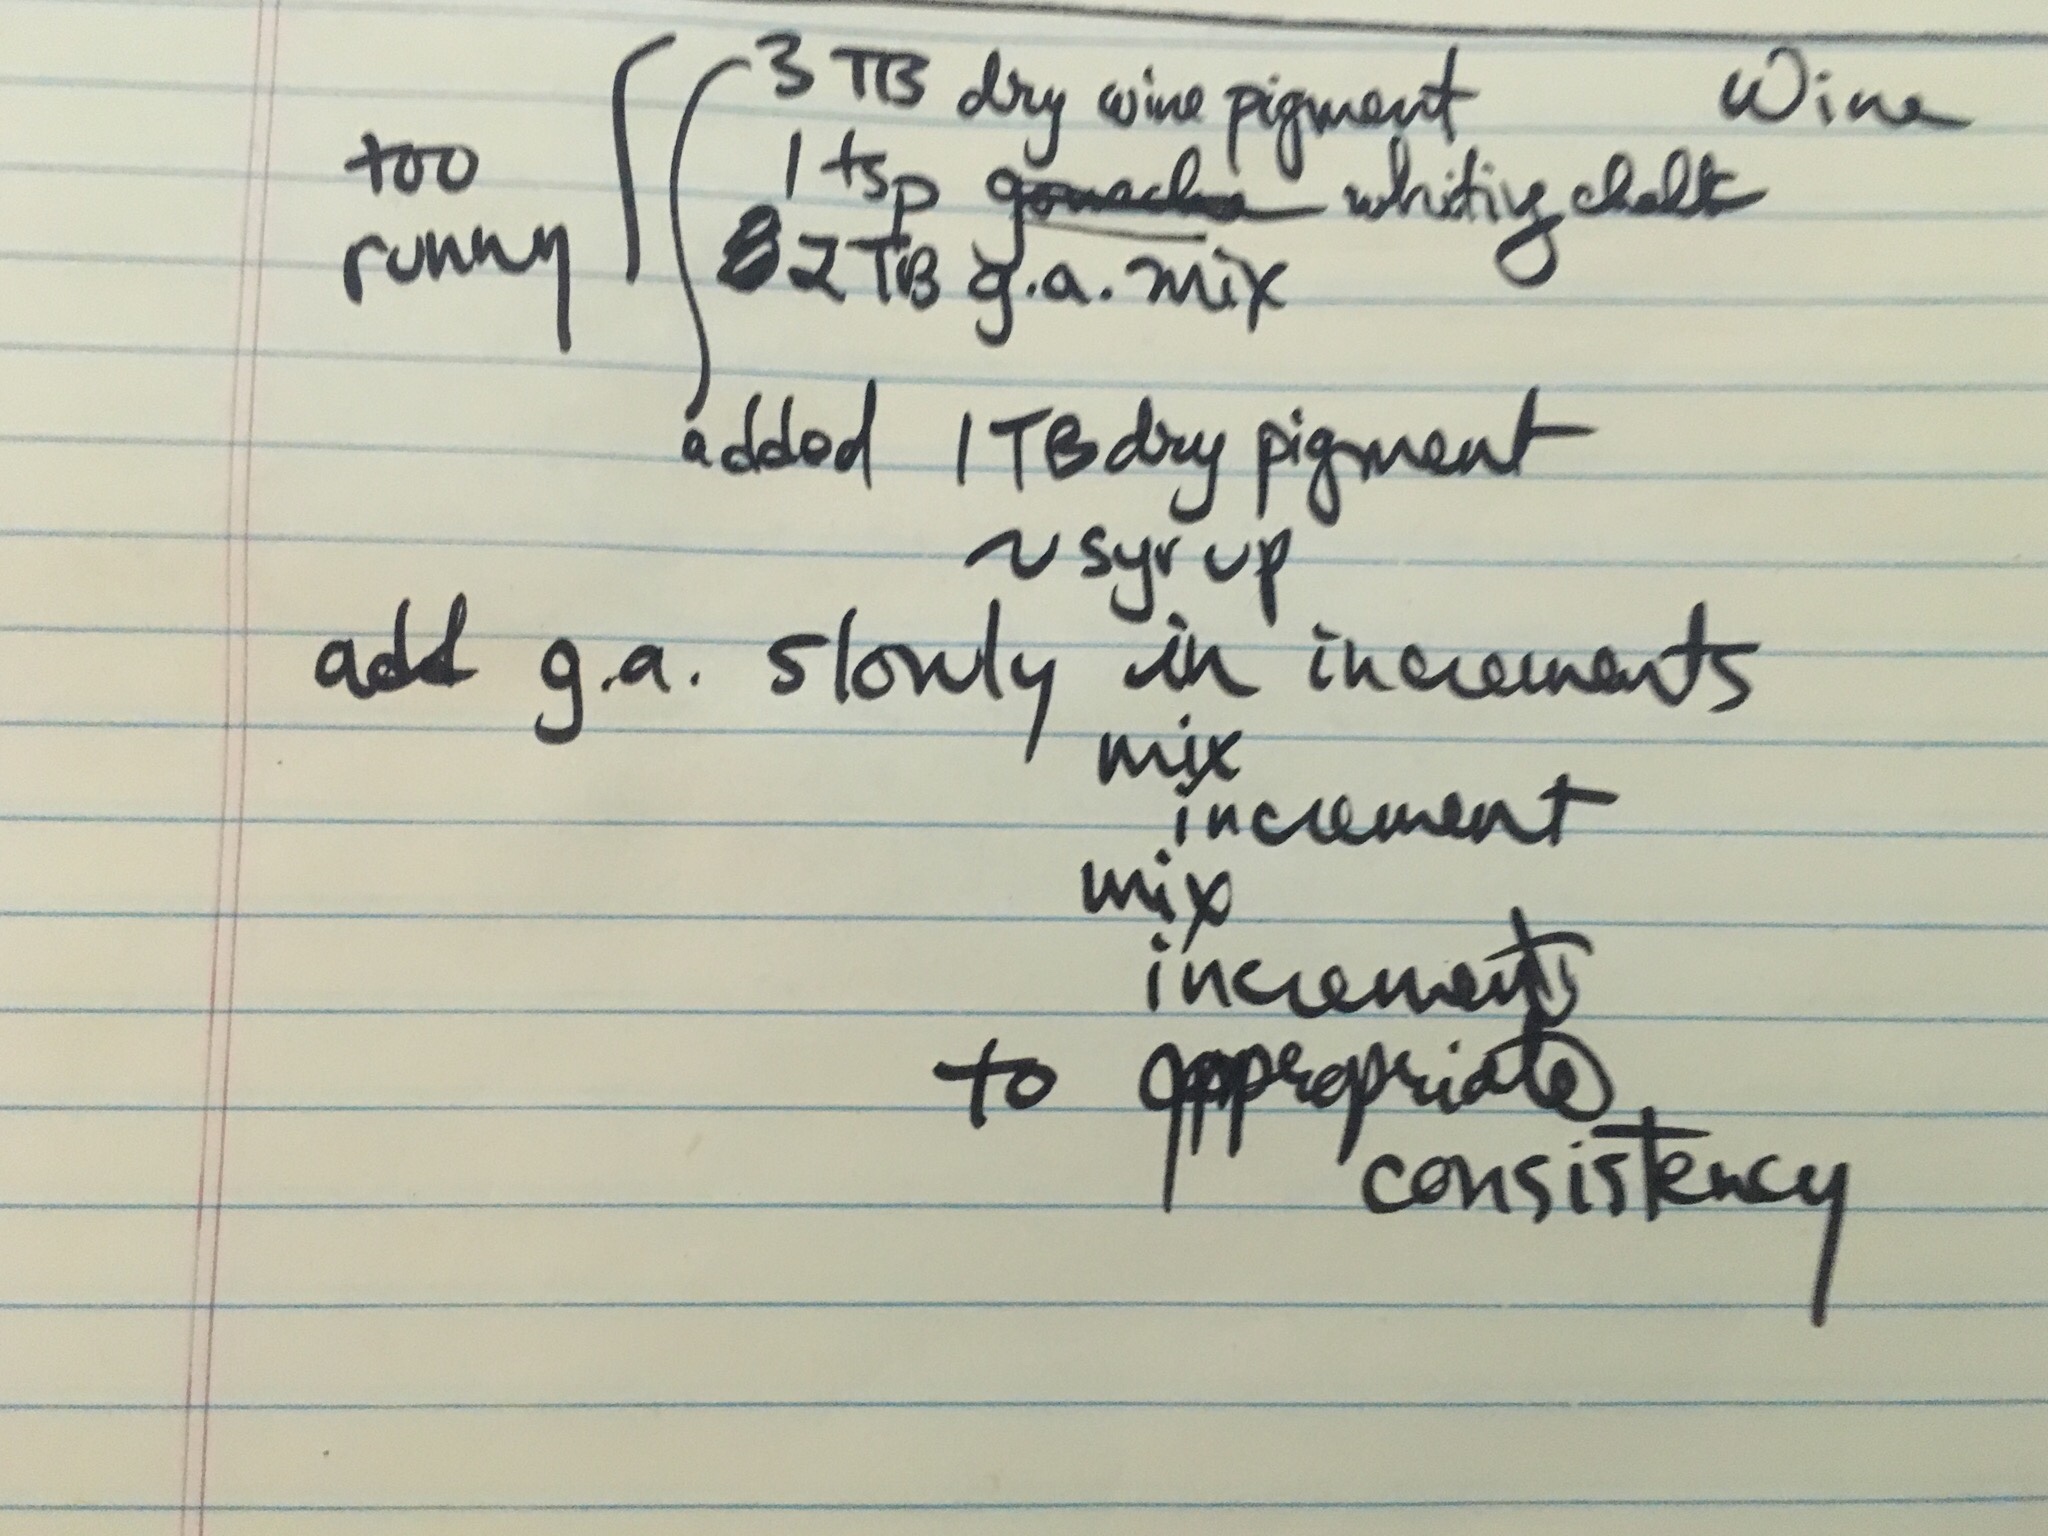 3 TB dry wine pigment Wine
1 tsp gouache whiting chalk
2 TB g.a. mix
too
runny
added 1 TB dry pigment
~ syrup
add g.a. slowly in increments
mix
increment
mix
increments
to appropriate
consistency